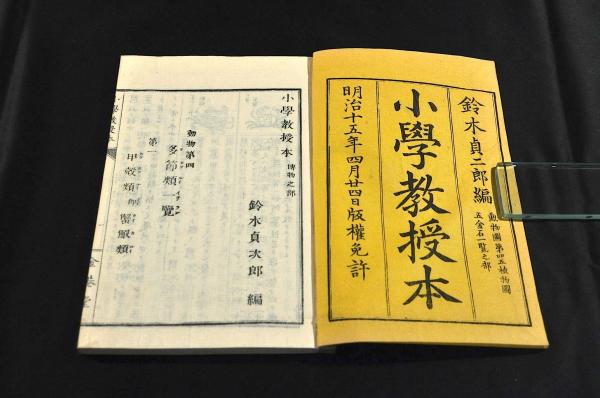 鈴木貞二郎編
動物圖第四五植物圖
五金石一覽之部
小學教授本
明治十五年四月廿四日版權免許
小學教授本 博物之部
鈴木貞次郎 編
動物第四
多節類一覽
第一
甲殼類 蟹蝦類
小學教授本
金港堂